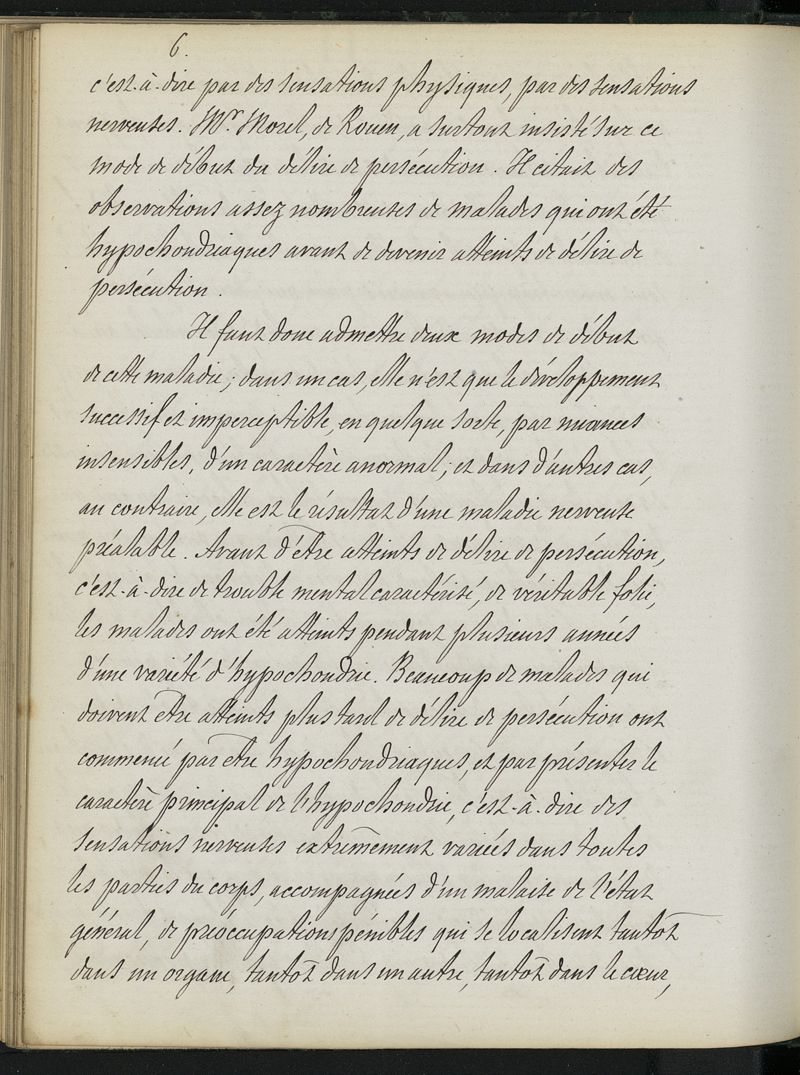 6.
c'est-à-dire par des sensations physiques, par des sensations
nerveuses. Mr. Morel, de Rouen, a surtout insisté sur ce
mode de début du délire de persécution. Il citait des
observations assez nombreuses de malades qui ont été
hypochondriaques avant de devenir atteints de délire de
persécution.
Il faut donc admettre deux modes de début
de cette maladie; dans un cas, elle n'est que le développement
successif et imperceptible, en quelque sorte, par nuances
insensibles, d'un caractère anormal; et dans d'autres cas,
au contraire, elle est le résultat d'une maladie nerveuse
préalable. Avant d'être atteints de délire de persécution,
c'est-à-dire de trouble mental caractérisé, de véritable folie,
les malades ont été atteints pendant plusieurs années
d'une variété d'hypochondrie. Beaucoup de malades qui
doivent être atteints plus tard de délire de persécution ont
commencé par être hypochondriaques, et par présenter le
caractère principal de l'hypochondrie, c'est-à-dire des
sensations nerveuses extrêmement variées dans toutes
les parties du corps, accompagnées d'un malaise de l'état
général, de préoccupations pénibles qui se localisent tantôt
dans un organe, tantôt dans un autre, tantôt dans le cœur,